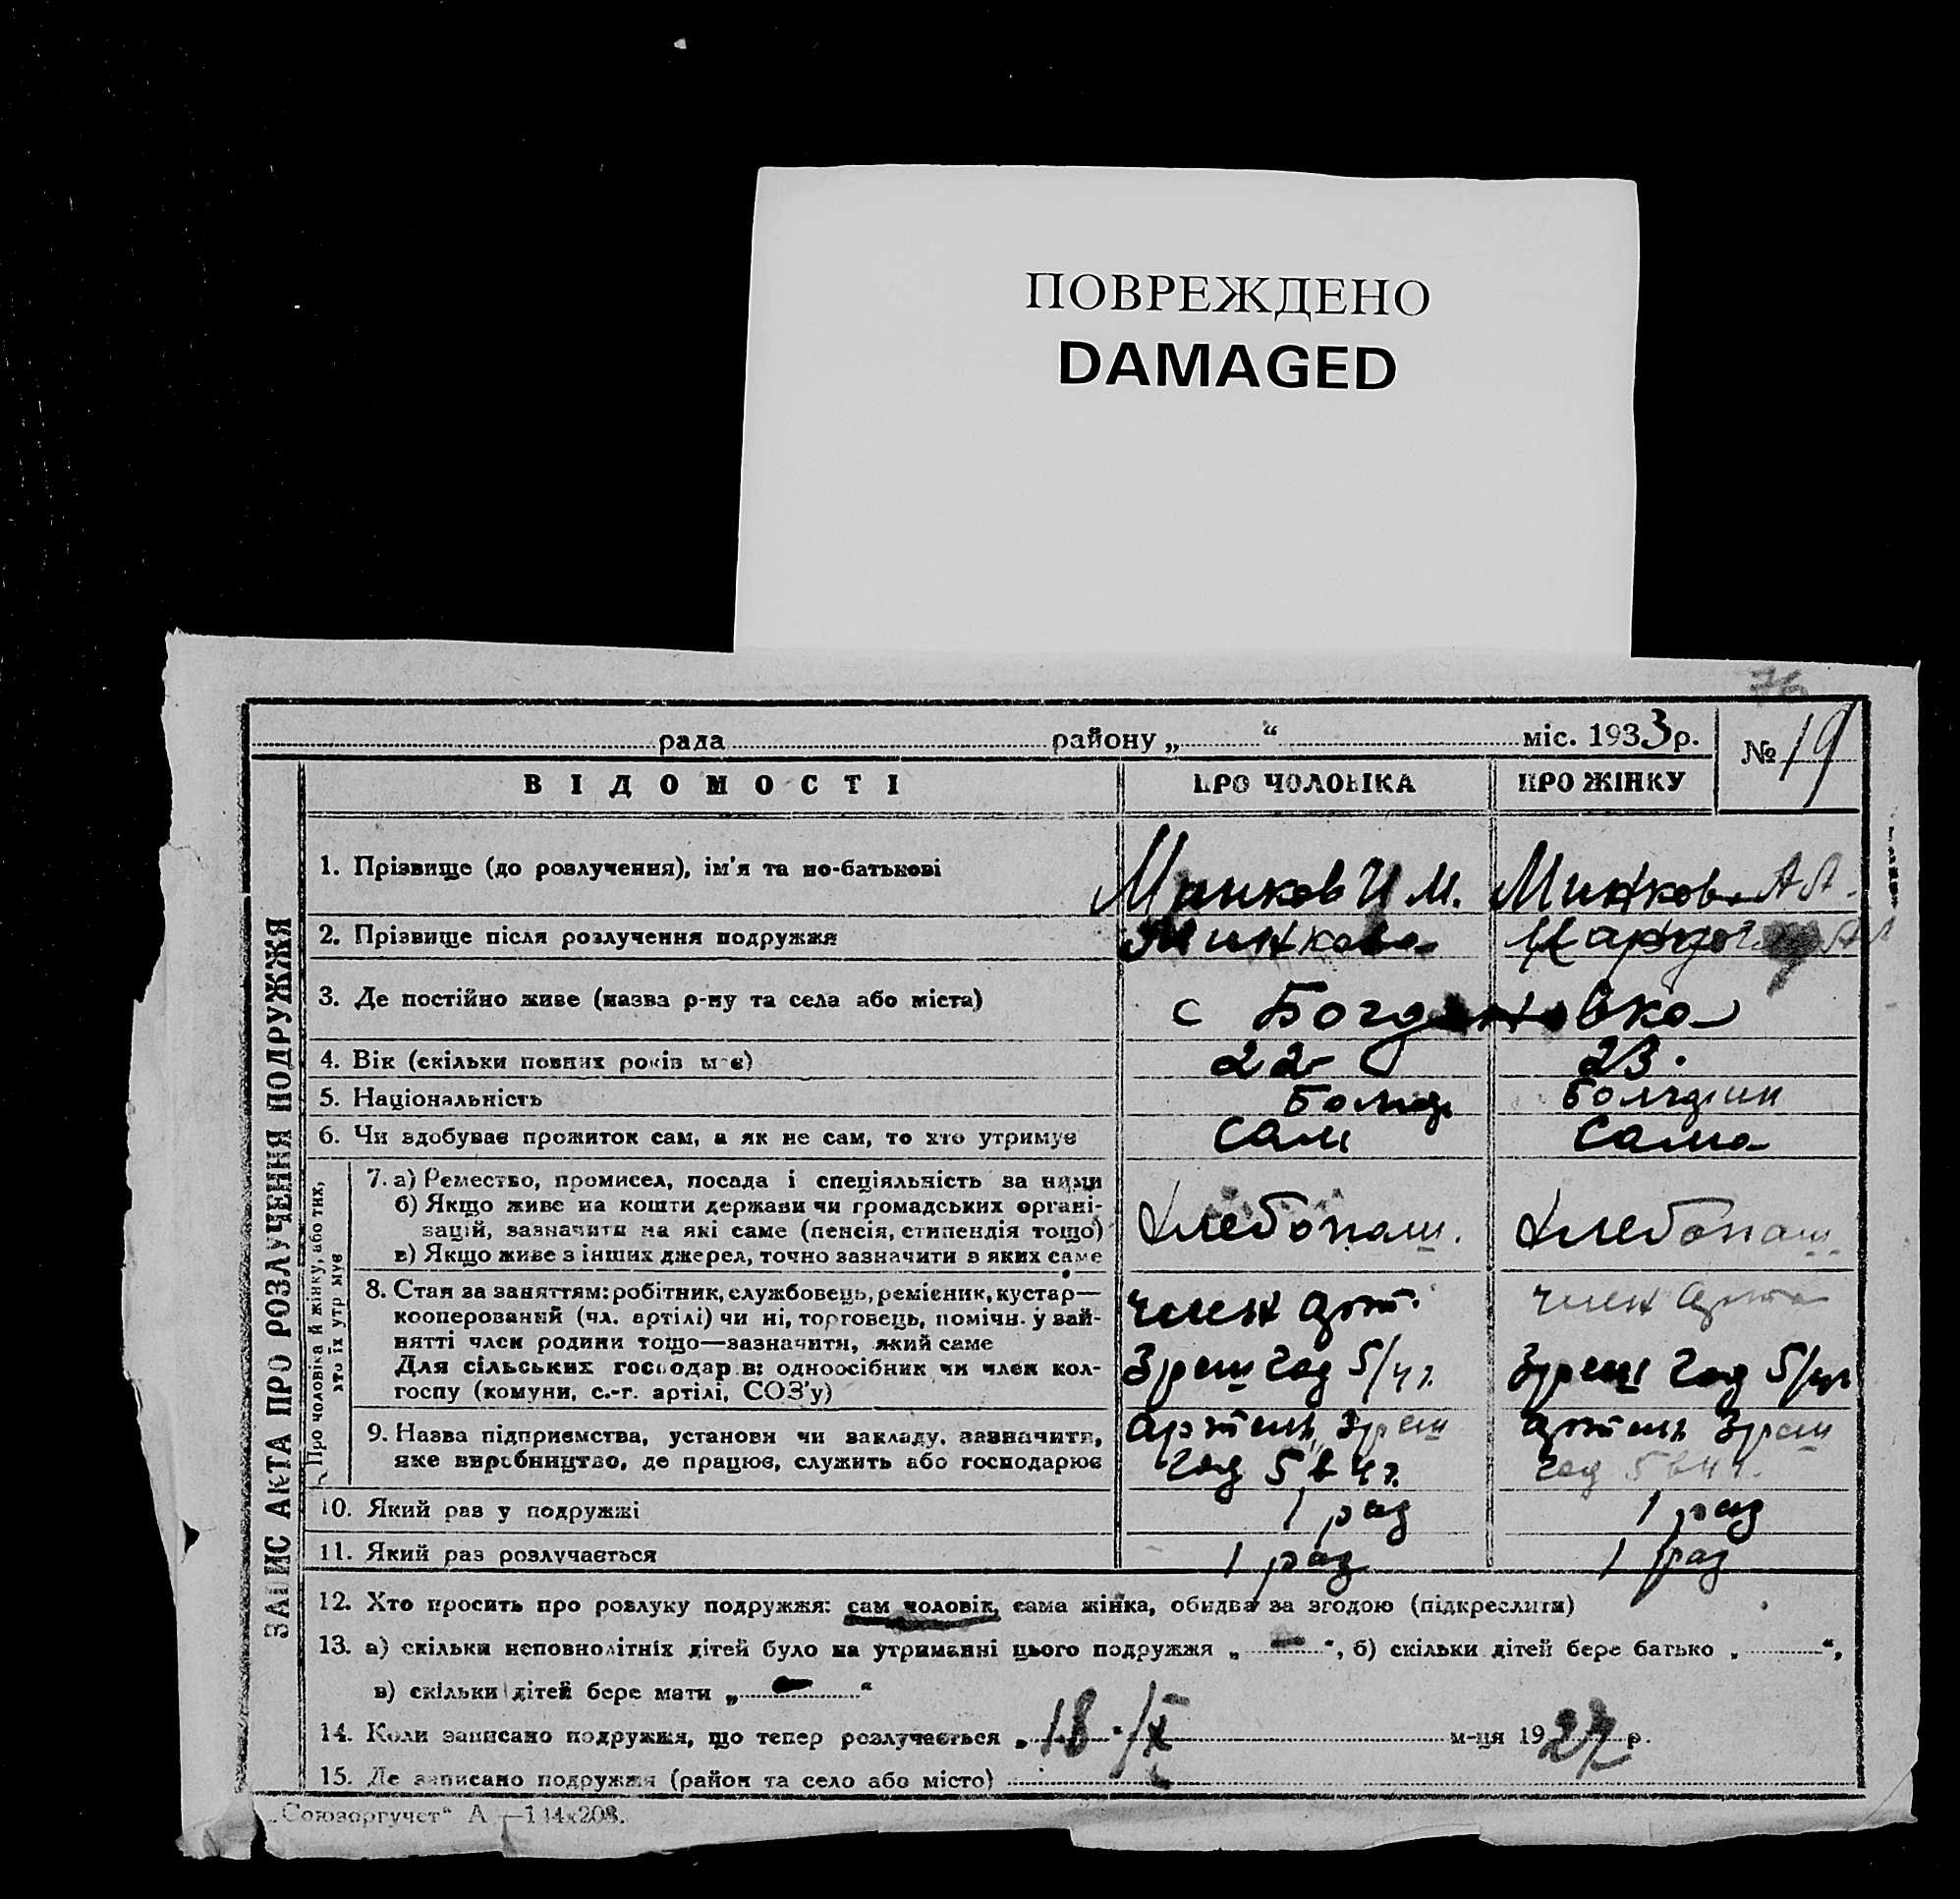 ПОВРЕЖДЕНО
DAMAGED
76
рада района району „ “ міс. 1933 р. № 19
ВІДОМОСТІ ПРО ЧОЛОВІКА ПРО ЖІНКУ
ЗАПИС АКТА ПРО РОЗЛУЧЕННЯ ПОДРУЖЖЯ
1. Прізвище (до розлучення), ім'я та по-батькові Минков И М. Минкова А
2. Прізвище після розлучення подружжя Минкова
3. Де постійно живе (назва р-ну та села або міста) с Богдановка
4. Вік (скільки повних років має) 22 23.
5. Національність Болгар Болгарин
6. Чи здобуває прожиток сам, а як не сам, то хто утримує Сам Сама
Про чоловіка й жінку, або тих,
хто їх утримує
7. а) Ремество, промисел, посада і спеціяльність за ними
б) Якщо живе на кошти держави чи громадських органі-
зацій, зазначити на які саме (пенсія, стипендія тощо)
в) Якщо живе з інших джерел, точно зазначити з яких саме
Хлебопаш. Хлебопаш.
8. Стан за заняттям: робітник, службовець, ремісник, кустар—
кооперований (чл. артілі) чи ні, торговець, помічн. у зай-
нятті член родини тощо—зазначити, який саме
Для сільських господарів: одноосібник чи член кол-
госпу (комуни, с.-г. артілі, СОЗ'у)
член арт. член арте
год 5/4г. год 5/4г
9. Назва підприємства, установи чи закладу, зазначити,
яке виробництво, де працює, служить або господарює
артель артель
год 5 в 4 г. год 5 в 4 г.
10. Який раз у подружжі 1 раз 1 раз
11. Який раз розлучається 1 раз 1 раз
12. Хто просить про розлуку подружжя: сам чоловік, сама жінка, обидва за згодою (підкреслити)
13. а) скільки неповнолітніх дітей було на утриманні цього подружжя „ — “, б) скільки дітей бере батько „ “,
в) скільки дітей бере мати „ — “
14. Коли записано подружжя, що тепер розлучається „ 18 · IX м-ця 1927 р.
15. Де записано подружжя (район та село або місто)
„Союзоргучет“ А —144х208.